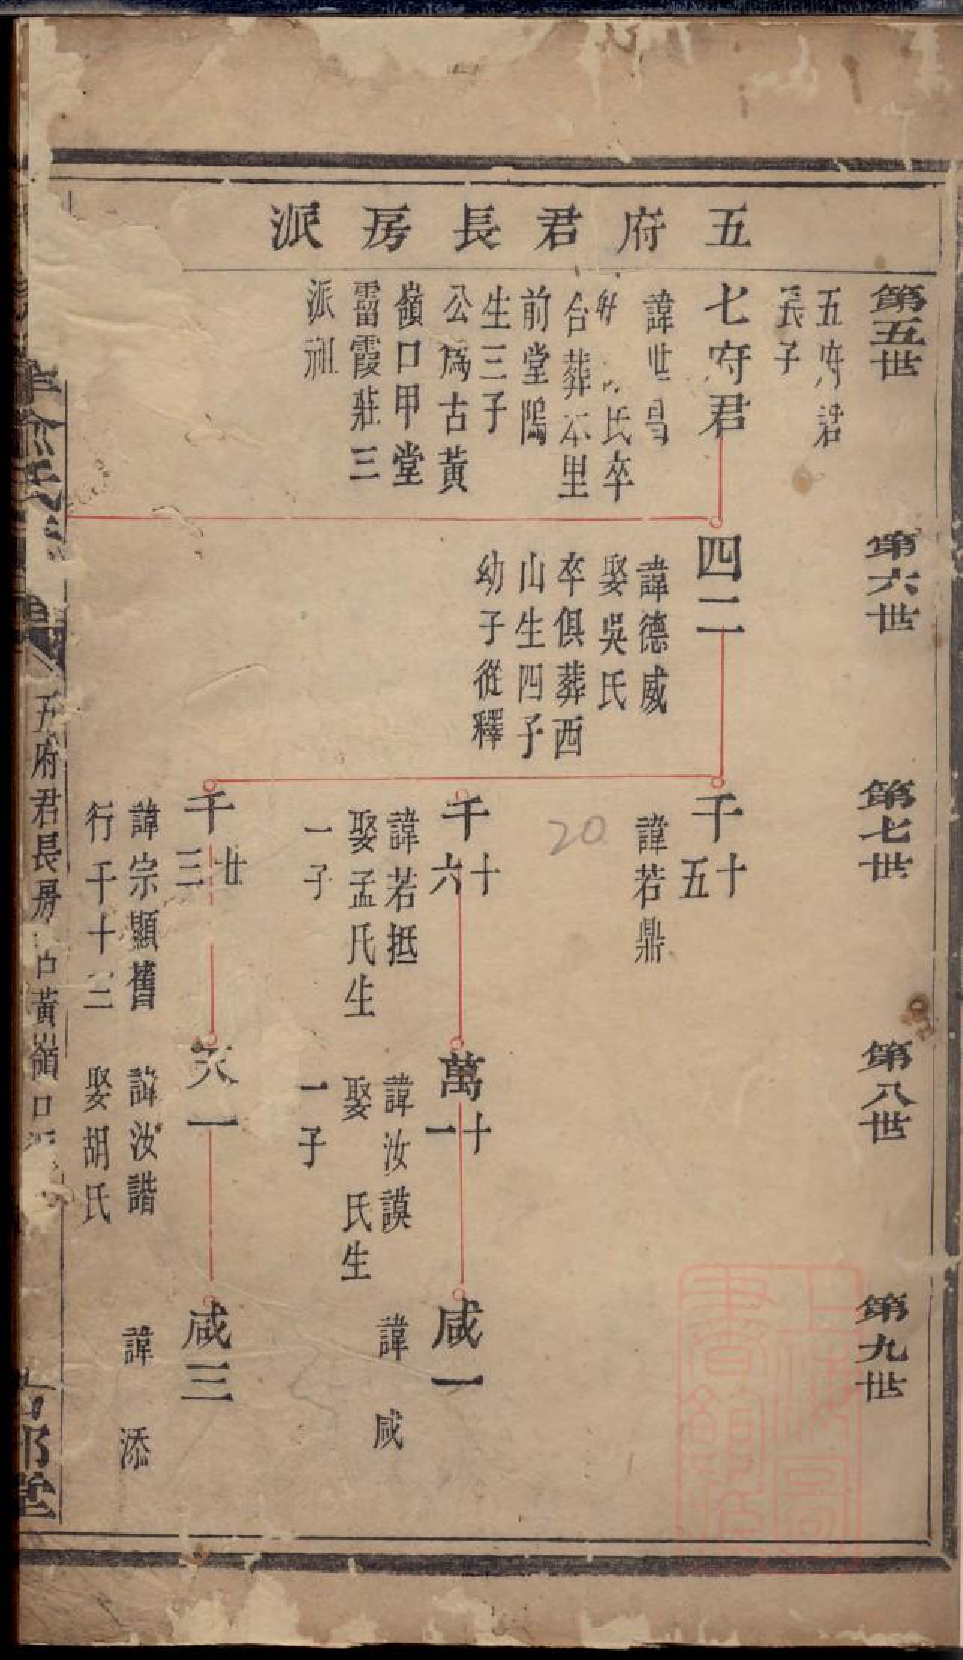 五府君長房派
第五世
五府君
長子
七府君
諱世昌
氏卒
合葬本里
前堂隖
生三子
公爲古黃
嶺口甲堂
雷霞莊三
派祖
第六世
四二
諱德威
娶吳氏
卒俱葬西
山生四子
幼子從釋
第七世
千十五
諱若鼎
20
千十六
諱若抵
娶孟氏生
一子
千廿三
諱宗顯舊
行千十三
第八世
萬十一
諱汝謨
娶 氏生
一子
天一
諱汝諧
娶胡氏
第九世
咸一
諱 咸
咸三
諱 添
俞氏
五府君長房古黃嶺口
堂